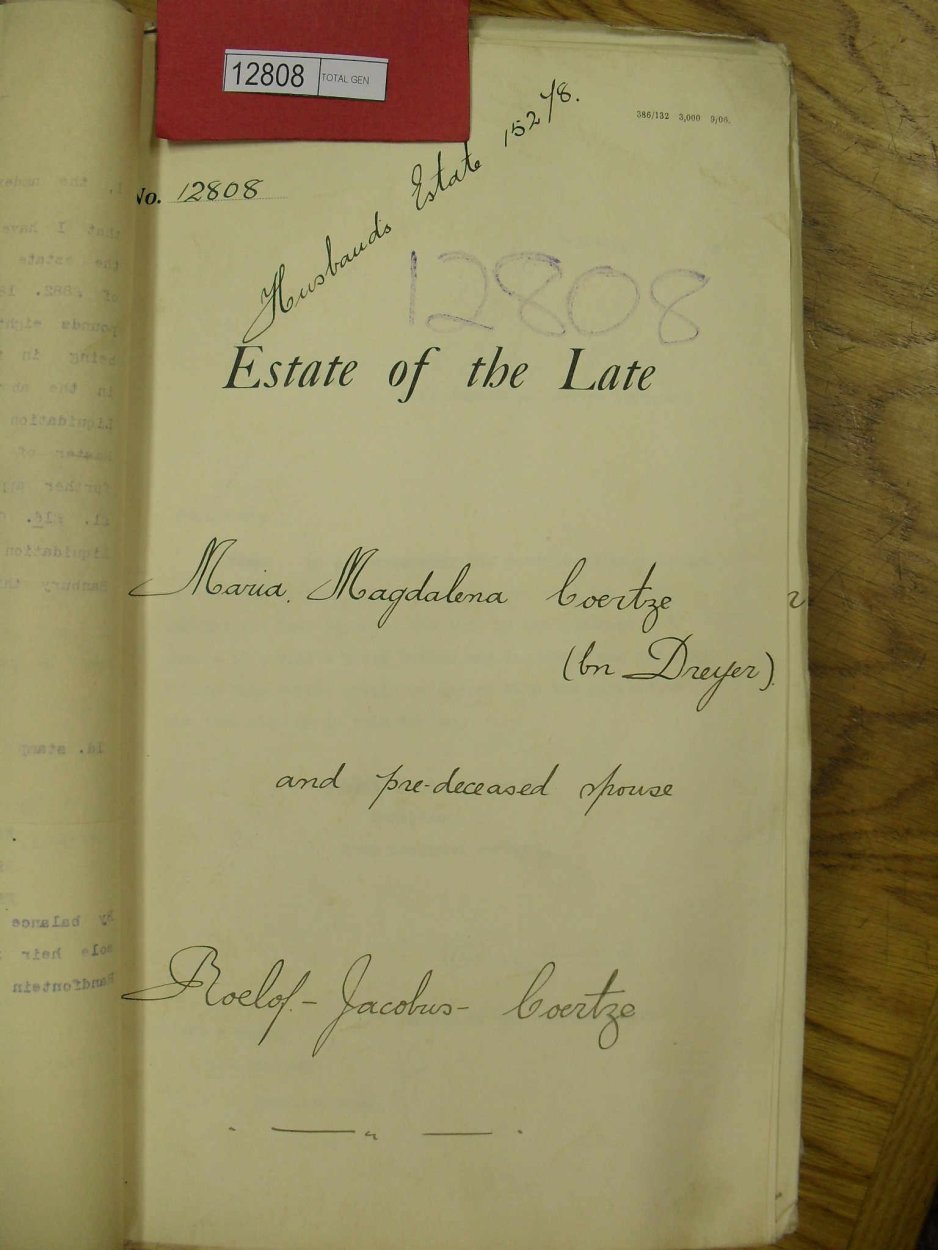 12808 TOTAL GEN
386/132 3,000 9/06.
No. 12808
Husband's Estate 15278.
12808
Estate of the Late
Maria Magdalena Coertze
(bn Dreyer).
and pre-deceased spouse
Roelof-Jacobus-Coertze